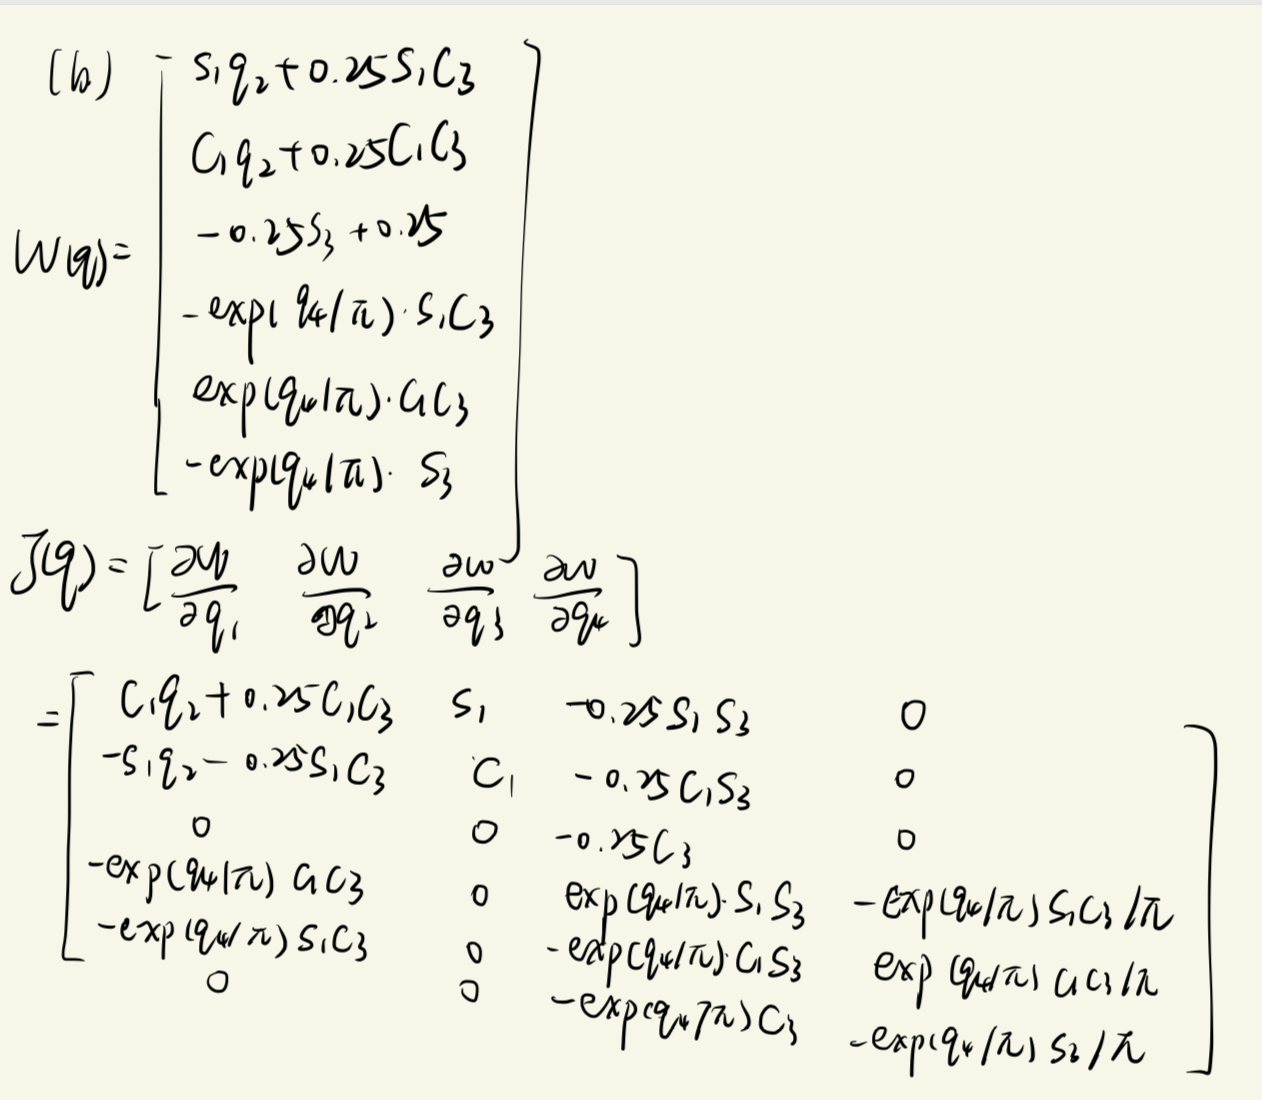 (b)
S₁q₂+0.25S₁C₃
C₁q₂+0.25C₁C₃
-0.25S₃+0.25
W(q)=
-exp(q₄/π)·S₁C₃
exp(q₄/π)·C₁C₃
-exp(q₄/π)·S₃
J(q)=[∂w/∂q₁ ∂w/∂q₂ ∂w/∂q₃ ∂w/∂q₄]
=[C₁q₂+0.25C₁C₃ S₁ -0.25S₁S₃ 0
-S₁q₂-0.25S₁C₃ C₁ -0.25C₁S₃ 0
0 0 -0.25C₃ 0
-exp(q₄/π)C₁C₃ 0 exp(q₄/π)·S₁S₃ -exp(q₄/π)S₁C₃/π
-exp(q₄/π)S₁C₃ 0 -exp(q₄/π)·C₁S₃ exp(q₄/π)C₁C₃/π
0 0 -exp(q₄/π)C₃ -exp(q₄/π)S₃/π]